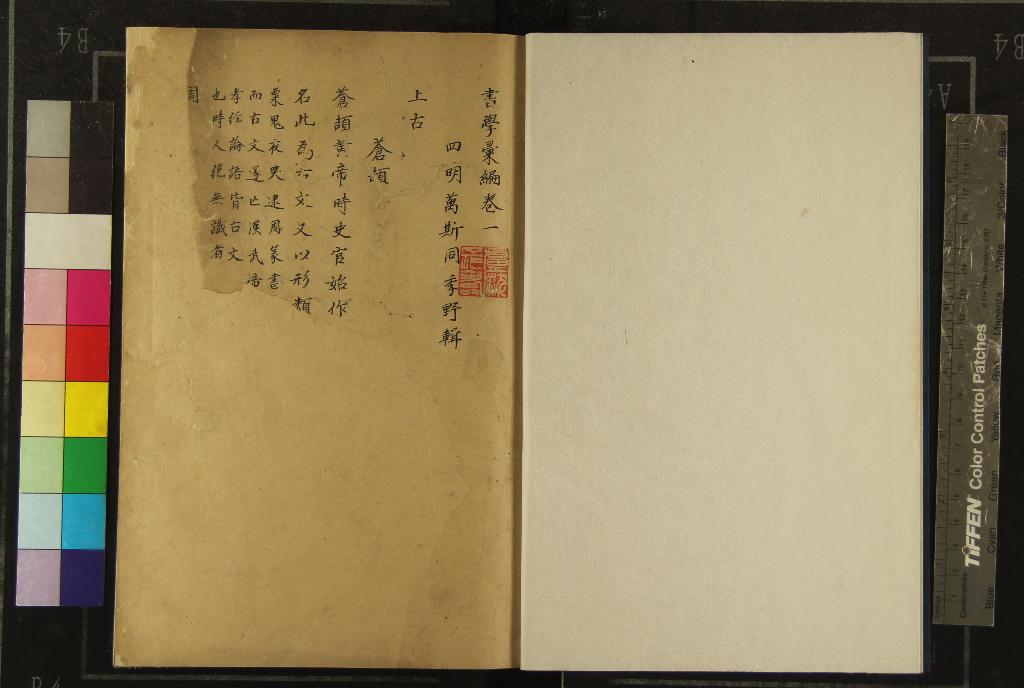 書學彙編卷一
四明萬斯同季野輯
上古
蒼頡
蒼頡黃帝時史官始作
名此為六文又以形類
粟鬼夜哭逮周篆書
而古文遂亡漢武帝
孝經論語皆古文
也時人絕無識者
周
B4
B4
A
TIFFEN Color Control Patches
© The Tiffen Company, 2007
Centimetres
Blue
Cyan
Green
Yellow
Red
Magenta
White
3/Color
Black